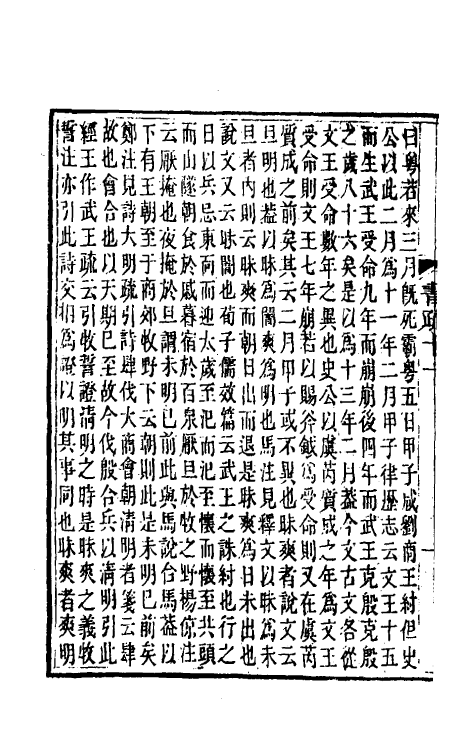 曰粵若來三月旣死霸粵五日甲子咸劉商王紂但史
公以此二月爲十一年二月甲子律歷志云文王十五
而生武王受命九年而崩崩後四年而武王克殷克殷
之歲八十六矣是以爲十三年二月葢今文古文各從
文王受命數年之異也史公以虞芮質成之年爲文王
受命則文王七年崩若以賜斧鉞爲受命則又在虞芮
質成之前矣其云二月甲子或不異也昧爽者說文云
旦明也葢以昧爲闇爽爲明也馬注見釋文以昧爲未
旦者內則云昧爽而朝日出而退是昧爽爲日未出也
說文又云昧闇也荀子儒效篇云武王之誅紂也行之
日以兵忌東面而迎太歲至汜而汜至懷而懷至共頭
而山隧朝食於戚暮宿於百泉厭旦於牧之野楊倞注
云厭掩也夜掩於旦謂未明已前此與馬說合馬葢以
下有王朝至于商郊牧野下云朝則此是未明已前矣
鄭注見詩大明疏引詩肆伐大商會朝清明者箋云肆
故也會合也以天期已至故今伐殷合兵以清明引此
經王作武王疏云引牧誓證清明之時是昧爽之義牧
誓注亦引此詩交相爲證以明其事同也昧爽者爽明
書疏十一